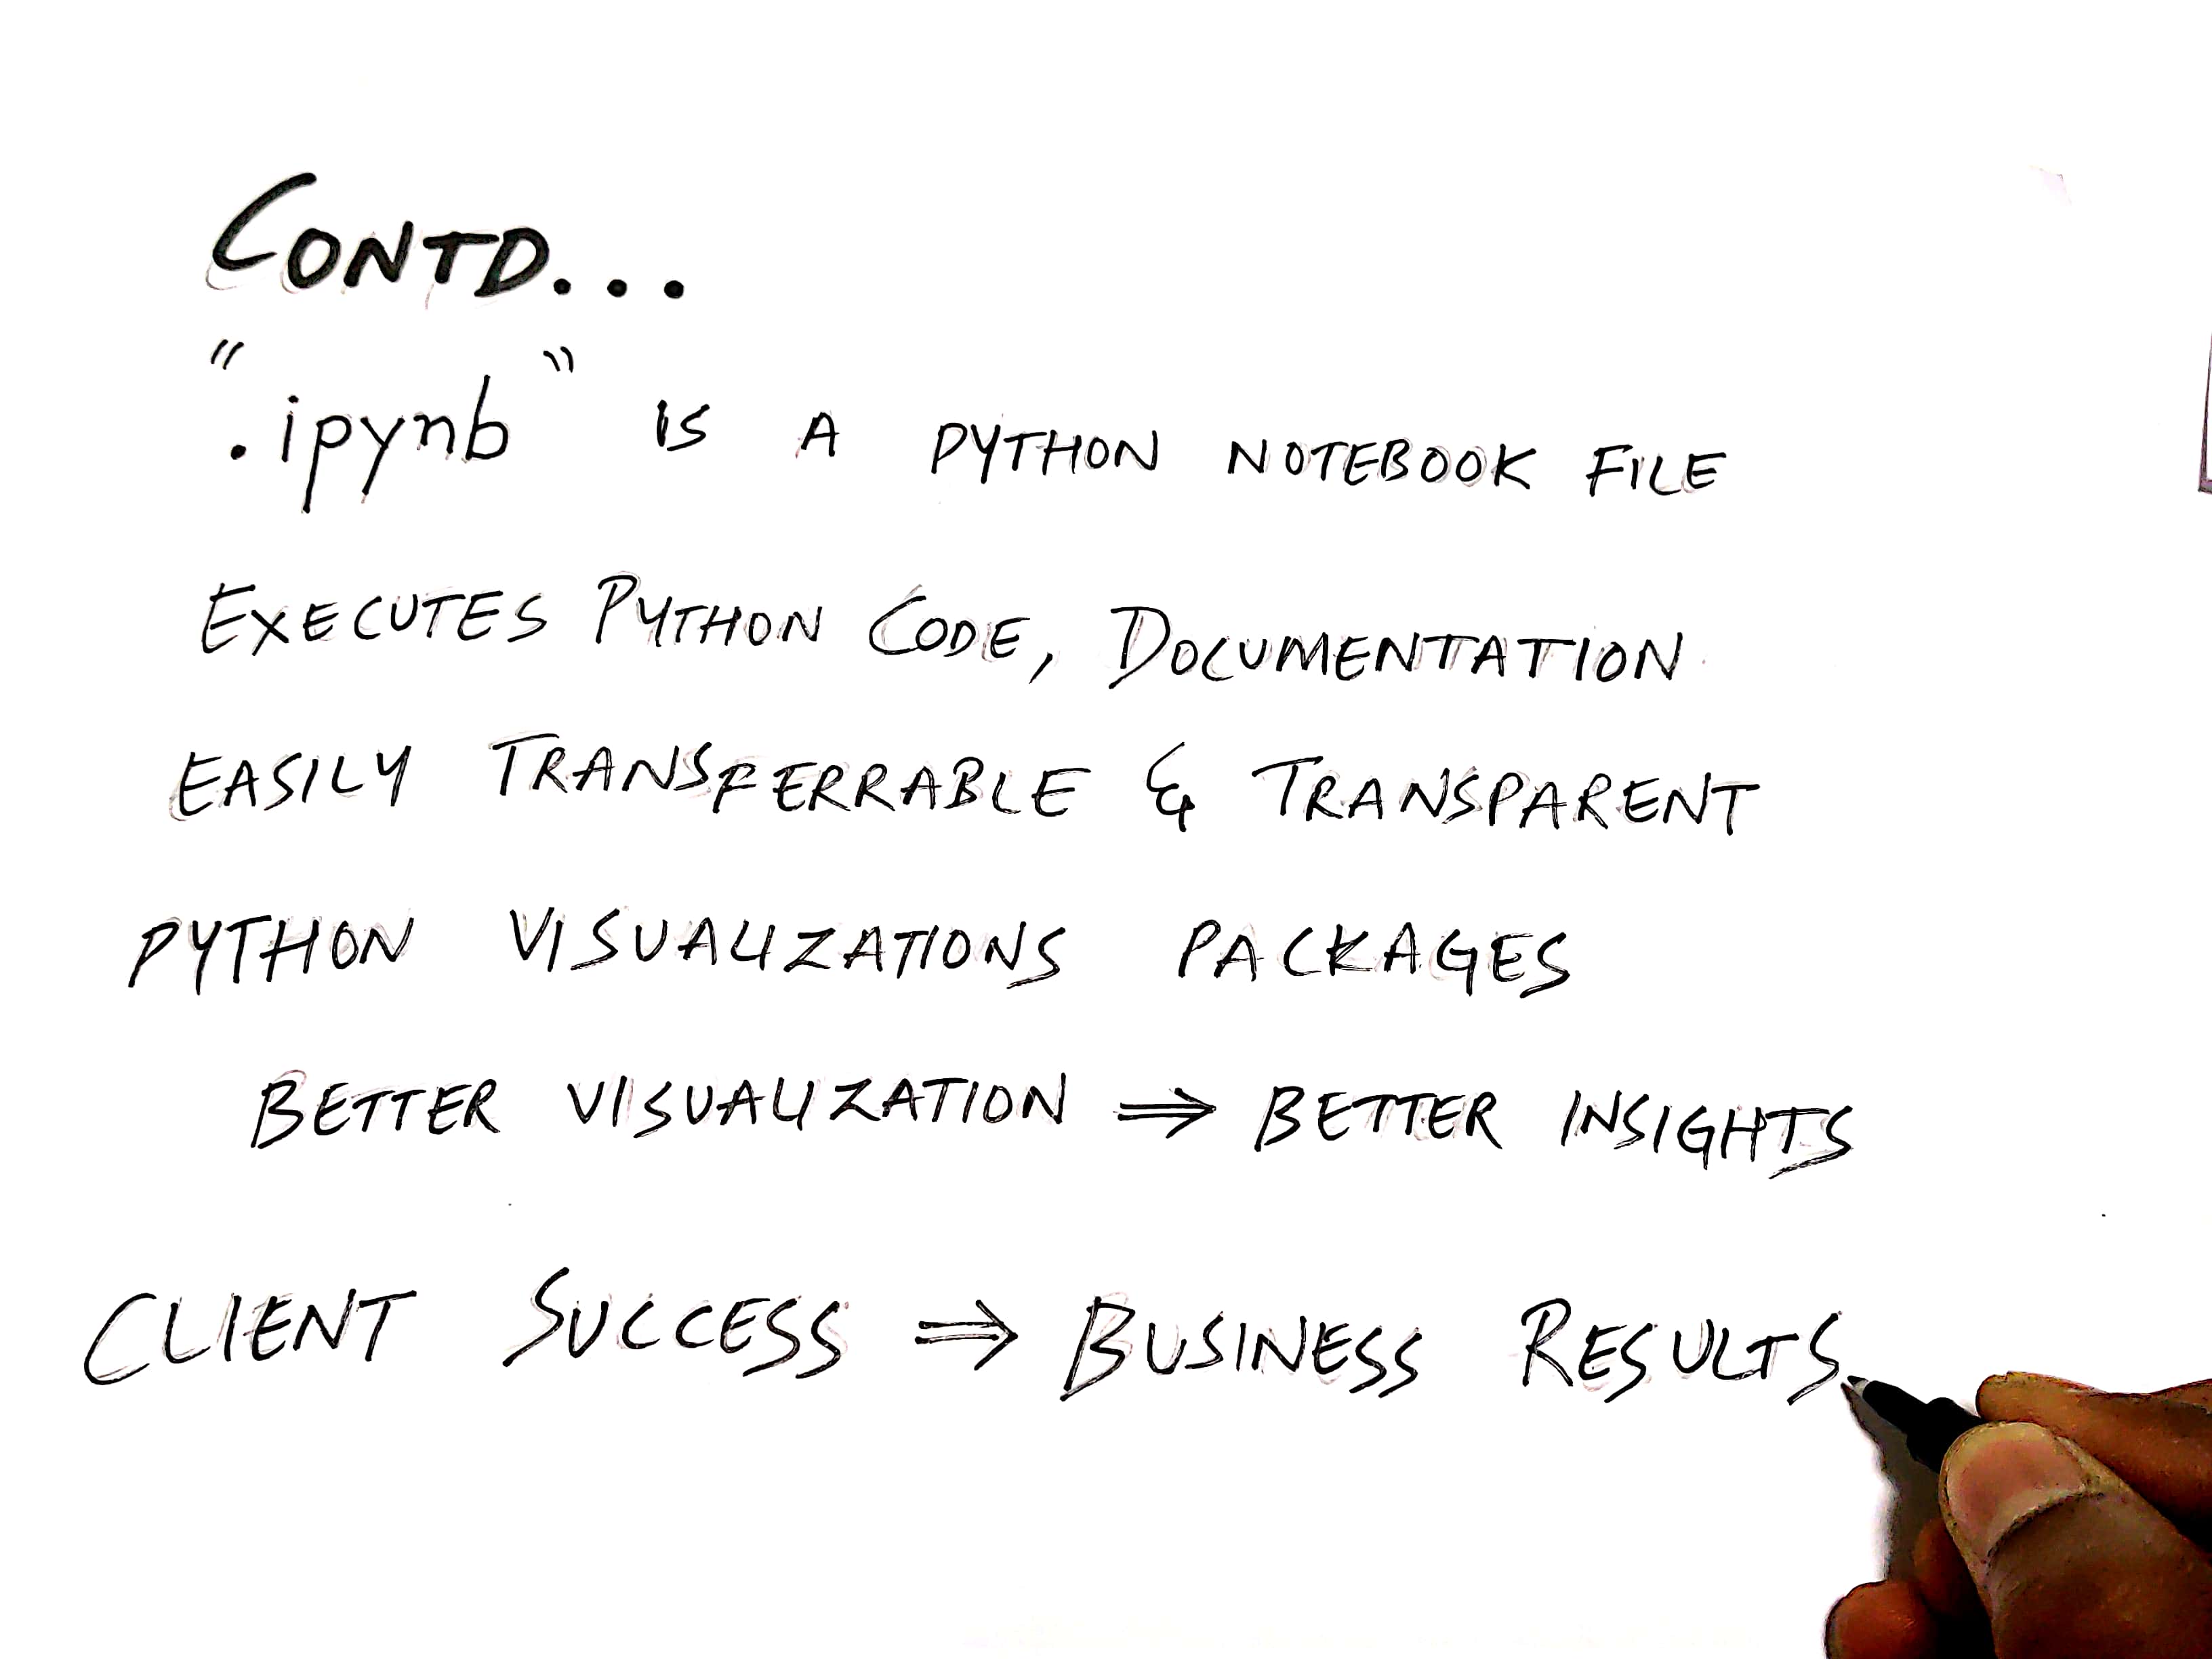 CONTD...
".ipynb" IS A PYTHON NOTEBOOK FILE
EXECUTES PYTHON CODE, DOCUMENTATION
EASILY TRANSFERRABLE & TRANSPARENT
PYTHON VISUALIZATIONS PACKAGES
BETTER VISUALIZATION ⇒ BETTER INSIGHTS
CLIENT SUCCESS ⇒ BUSINESS RESULTS